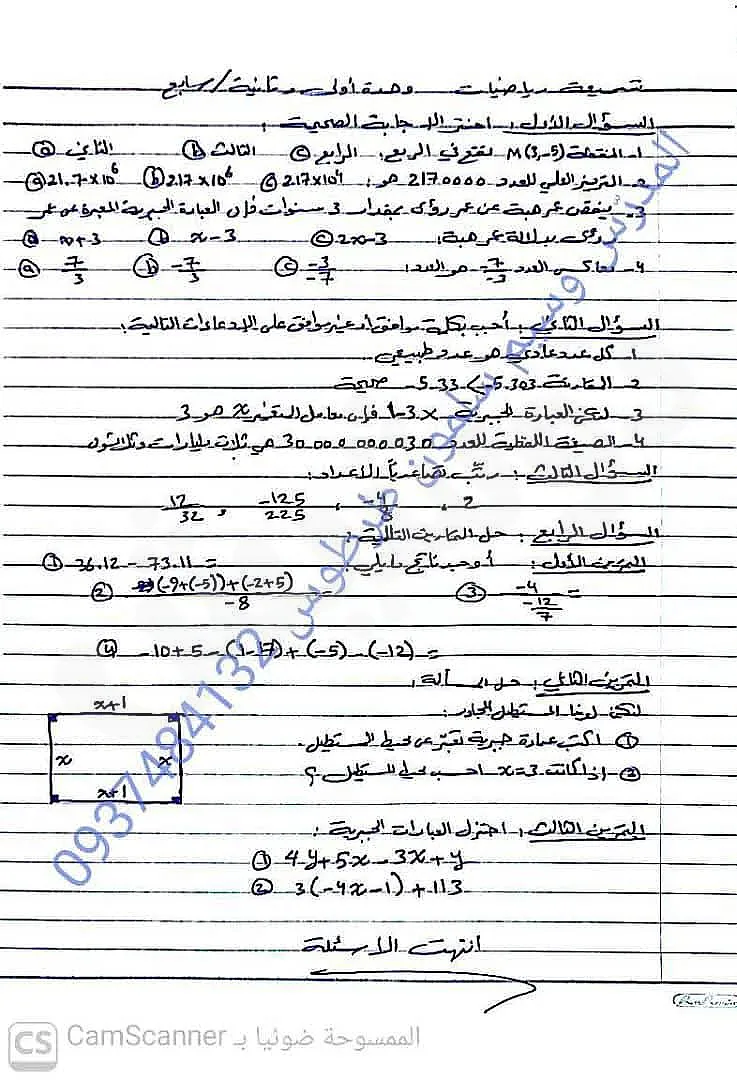 تسميعة رياضيات وحدة أولى وثانية / سابع
السؤال الأول: اختر الإجابة الصحيحة:
1- النقطة M(3,-5) تقع في الربع: ⓒ الرابع ⓑ الثالث ⓐ الثاني
2- الترميز العلمي للعدد 2170000 هو: ⓒ 217x10⁴ ⓑ 2.17x10⁶ ⓐ 21.7x10⁶
3- ينقص عمر هبة عن عمر رؤى بمقدار 3 سنوات فإن العبارة الجبرية المعبرة عن عمر
رؤى بدلالة عمر هبة: ⓒ 2x-3 ⓑ x-3 ⓐ x+3
4- معاكس العدد -7/-3 هو العدد: ⓒ -3/-7 ⓑ -7/3 ⓐ 7/3
السؤال الثاني: أجب بكلمة موافق أو غير موافق على الإدعاءات التالية:
1. كل عدد عادي هو عدد طبيعي.
2- المقارنة -5.303 > -5.33 صحيحة
3- لتكن العبارة الجبرية 1-3x فإن معامل المتغير x هو 3
4- الصيغة اللفظية للعدد 30000000030 هي ثلاث مليارات وثلاثون
السؤال الثالث: رتب تصاعدياً الأعداد:
2 ، -4/8 ، -125/225 ، 12/32
السؤال الرابع: حل التمارين التالية:
التمرين الأول: أوجد ناتج ما يلي: ① -36.12 - 73.11 =
② (-9+(-5))+(-2+5) / -8 = ③ -4 / (-12/7) =
④ -10+5-(1-17)+(-5)-(-12) =
التمرين الثاني: حل المسألة:
لتكن لدينا المستطيل المجاور:
x+1
① اكتب عبارة جبرية تعبر عن محيط المستطيل.
x x
② إذا كانت x=3 احسب محيط المستطيل؟
x+1
التمرين الثالث: اختزل العبارات الجبرية:
① 4y+5x-3x+y
② 3(-4x-1)+113
انتهت الأسئلة
المدرس وسيم سلمون طرطوس 0937484132
CS CamScanner الممسوحة ضوئيا بـ